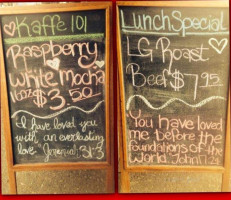 Kaffe 101
Raspberry
White Mocha
$3.50
I have loved you
with an everlasting
love Jeremiah 31:3
Lunch Special
LG Roast
Beef $7.95
You have loved
me before the
foundations of
the world John 17:24